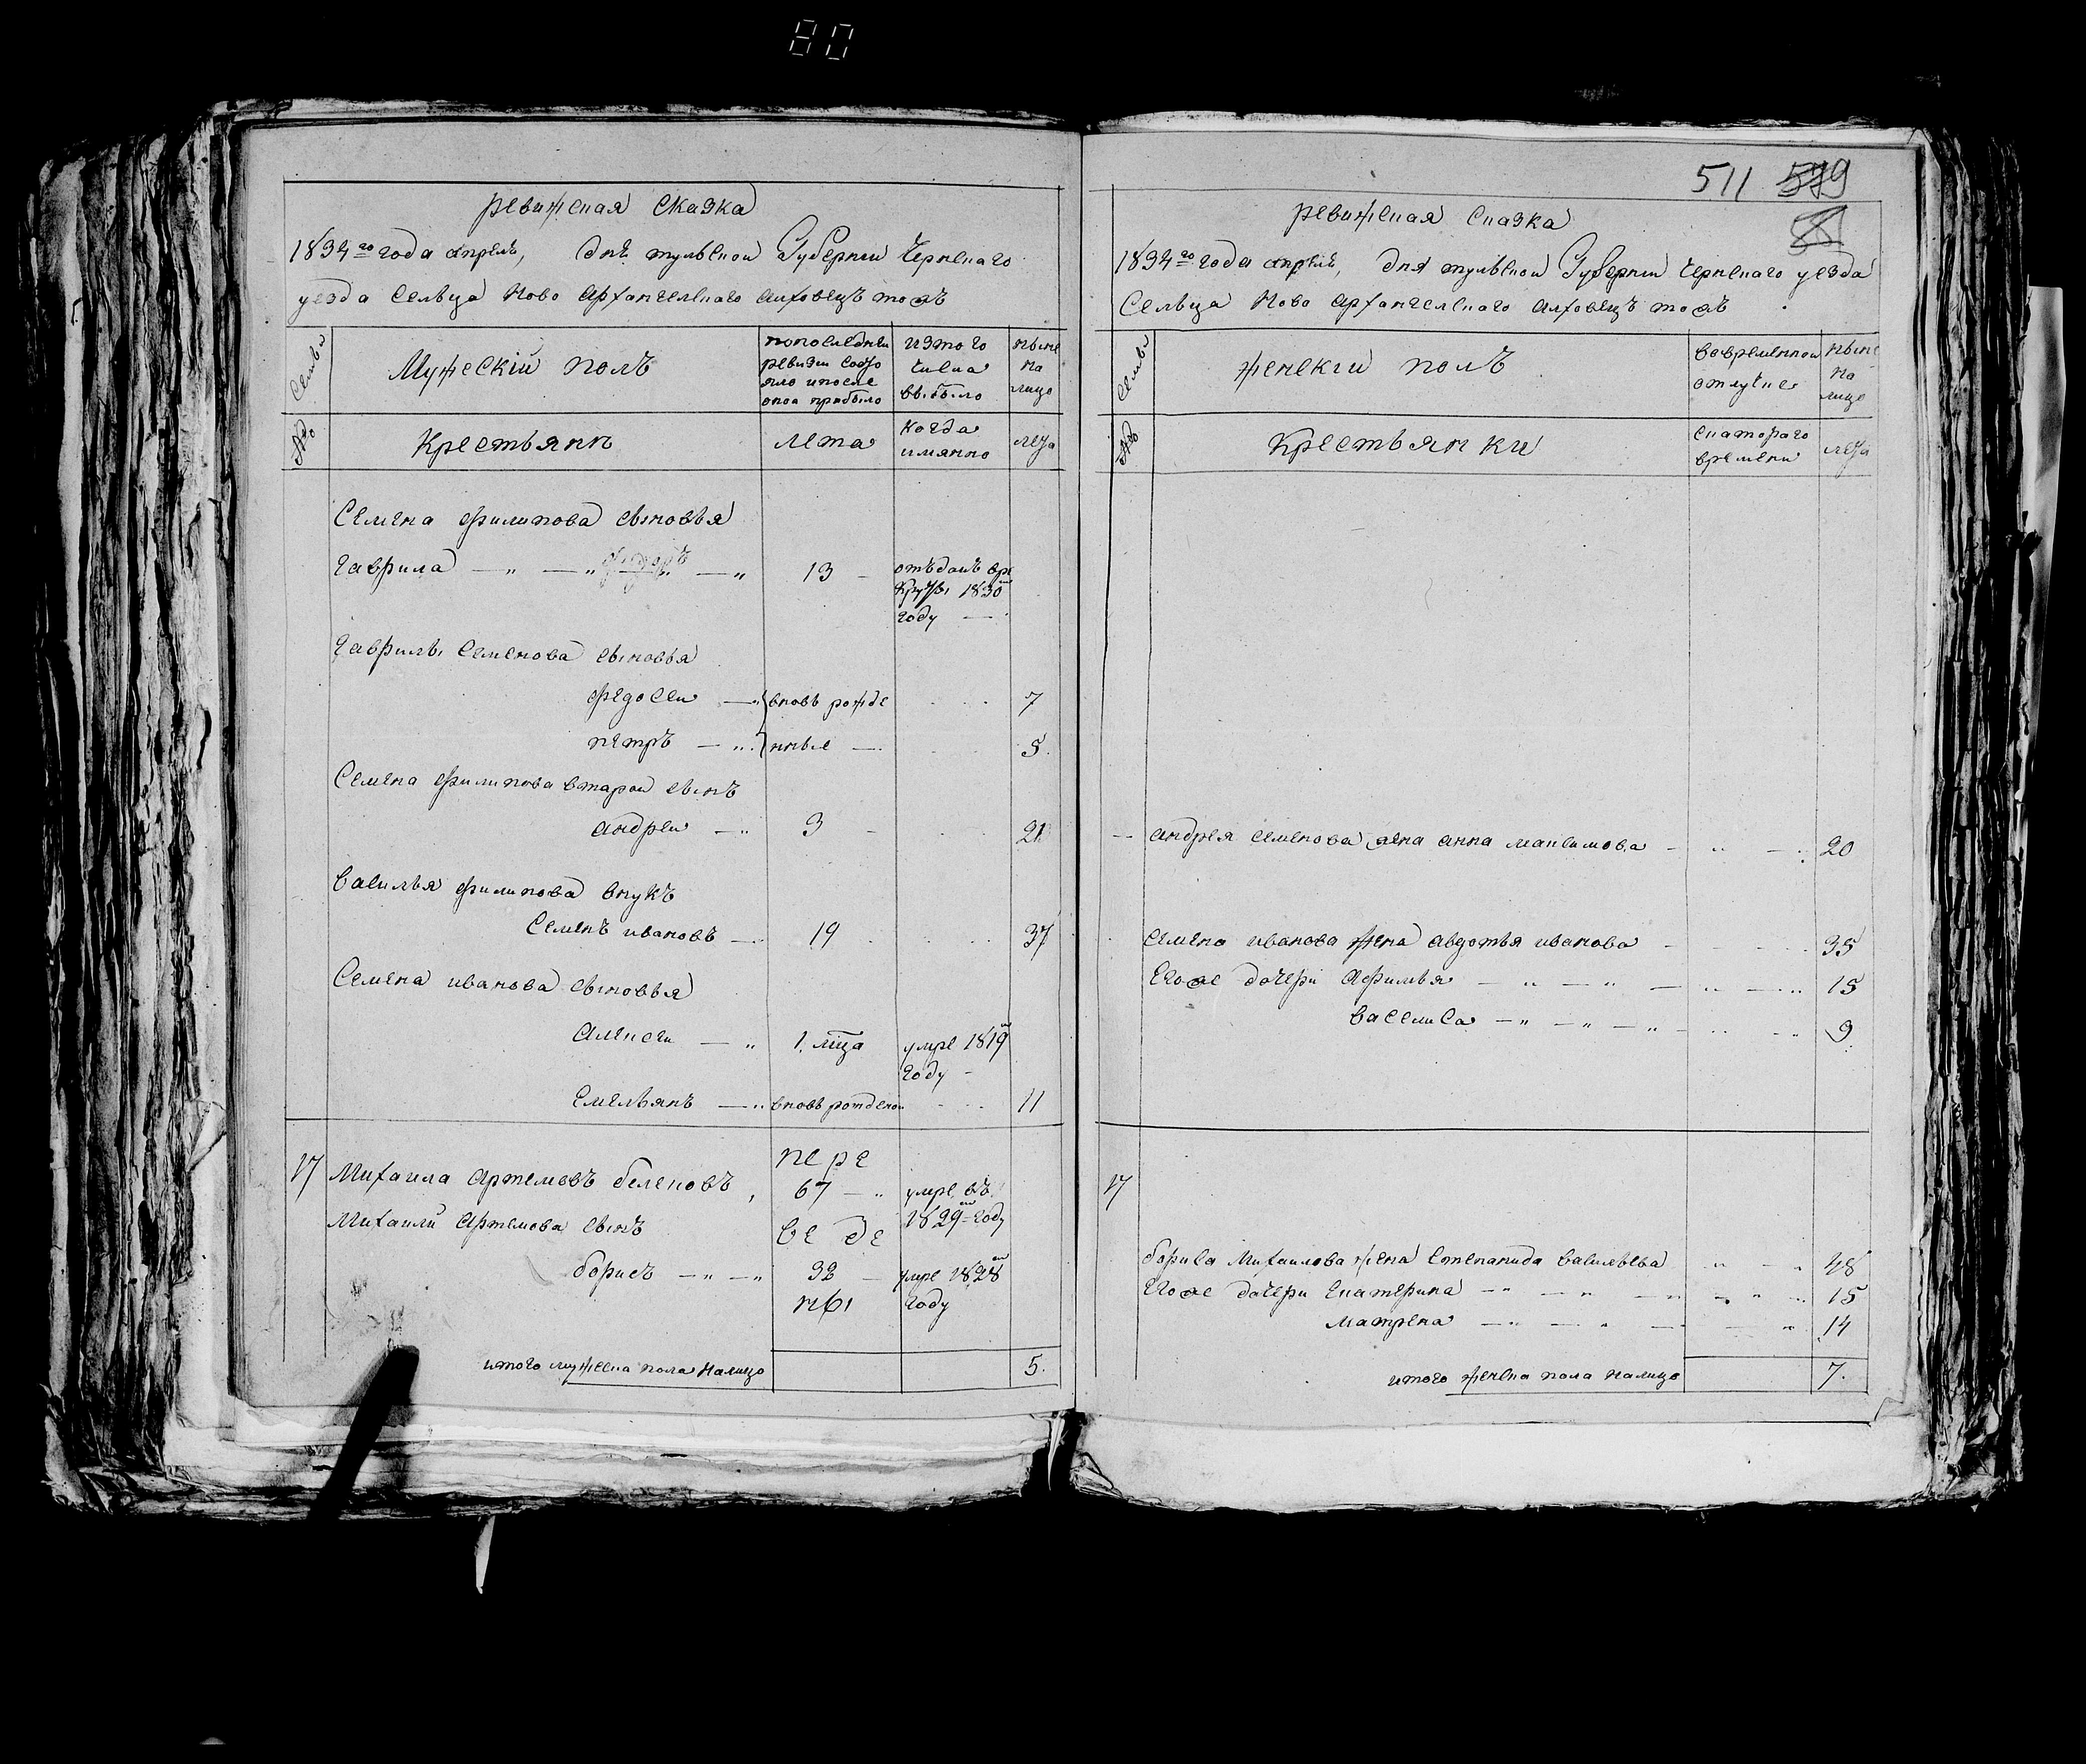 80
511 579
ревижская сказка
1834 го года апреля, дня тульской Губернии Чернскаго
уезда Сельца Ново Архангельскаго алховецъ тожъ
Семьи
Мужескій полъ
попоследней ревизи состо яло ипосле оной прибыло
изтого числа выбыло
ныне на лицо
№
Крестьяне
лета
когда имянно
лета
Семена филипова сыновья
Гаврила — „ — „ федоръ — „ 13 — отъданъ вре круты 1830 году —
Гаврилы Семенова сыновья
федосеи — „ вновь рожде 7
петръ — „ нные — 5.
Семена филипова второи сынъ
андреи — „ 3 — 21
василья филипова внукъ
Семенъ ивановъ — 19 37
Семена иванова сыновья
алексеи — „ 1. мца умре 1819 году -
емельянъ — „ вновь рожденои 11
17 Михаила артемовъ беленовъ, 67 — „ умре въ 1829 году
пере
Михаилы артемова сынъ
ве де
борисъ — „ — „ 32 — умре 1828 году
ны
итого мужеска пола налицо 5.
ревижская сказка
1834 го года апреля, дня тульской Губернии Чернскаго уезда
Сельца Ново архангельскаго алховецъ тожъ
Семьи
женскій полъ
вовременной отлучке
ныне на лицо
№
Крестьянки
скатораго времени
лета
андрея семенова жена анна максимова - „ — 20
семена иванова жена авдотья иванова - 35
Егоже дочери Афимья — „ — „ — „ — „ 15
василиса — „ — „ — „ - 9
17
бориса Михаилова жена степанида васильева „ - „ 48
Егоже дочери Екатерина — „ — „ — „ 15
матрена — „ — „ — „ 14
итого женска пола налицо 7.